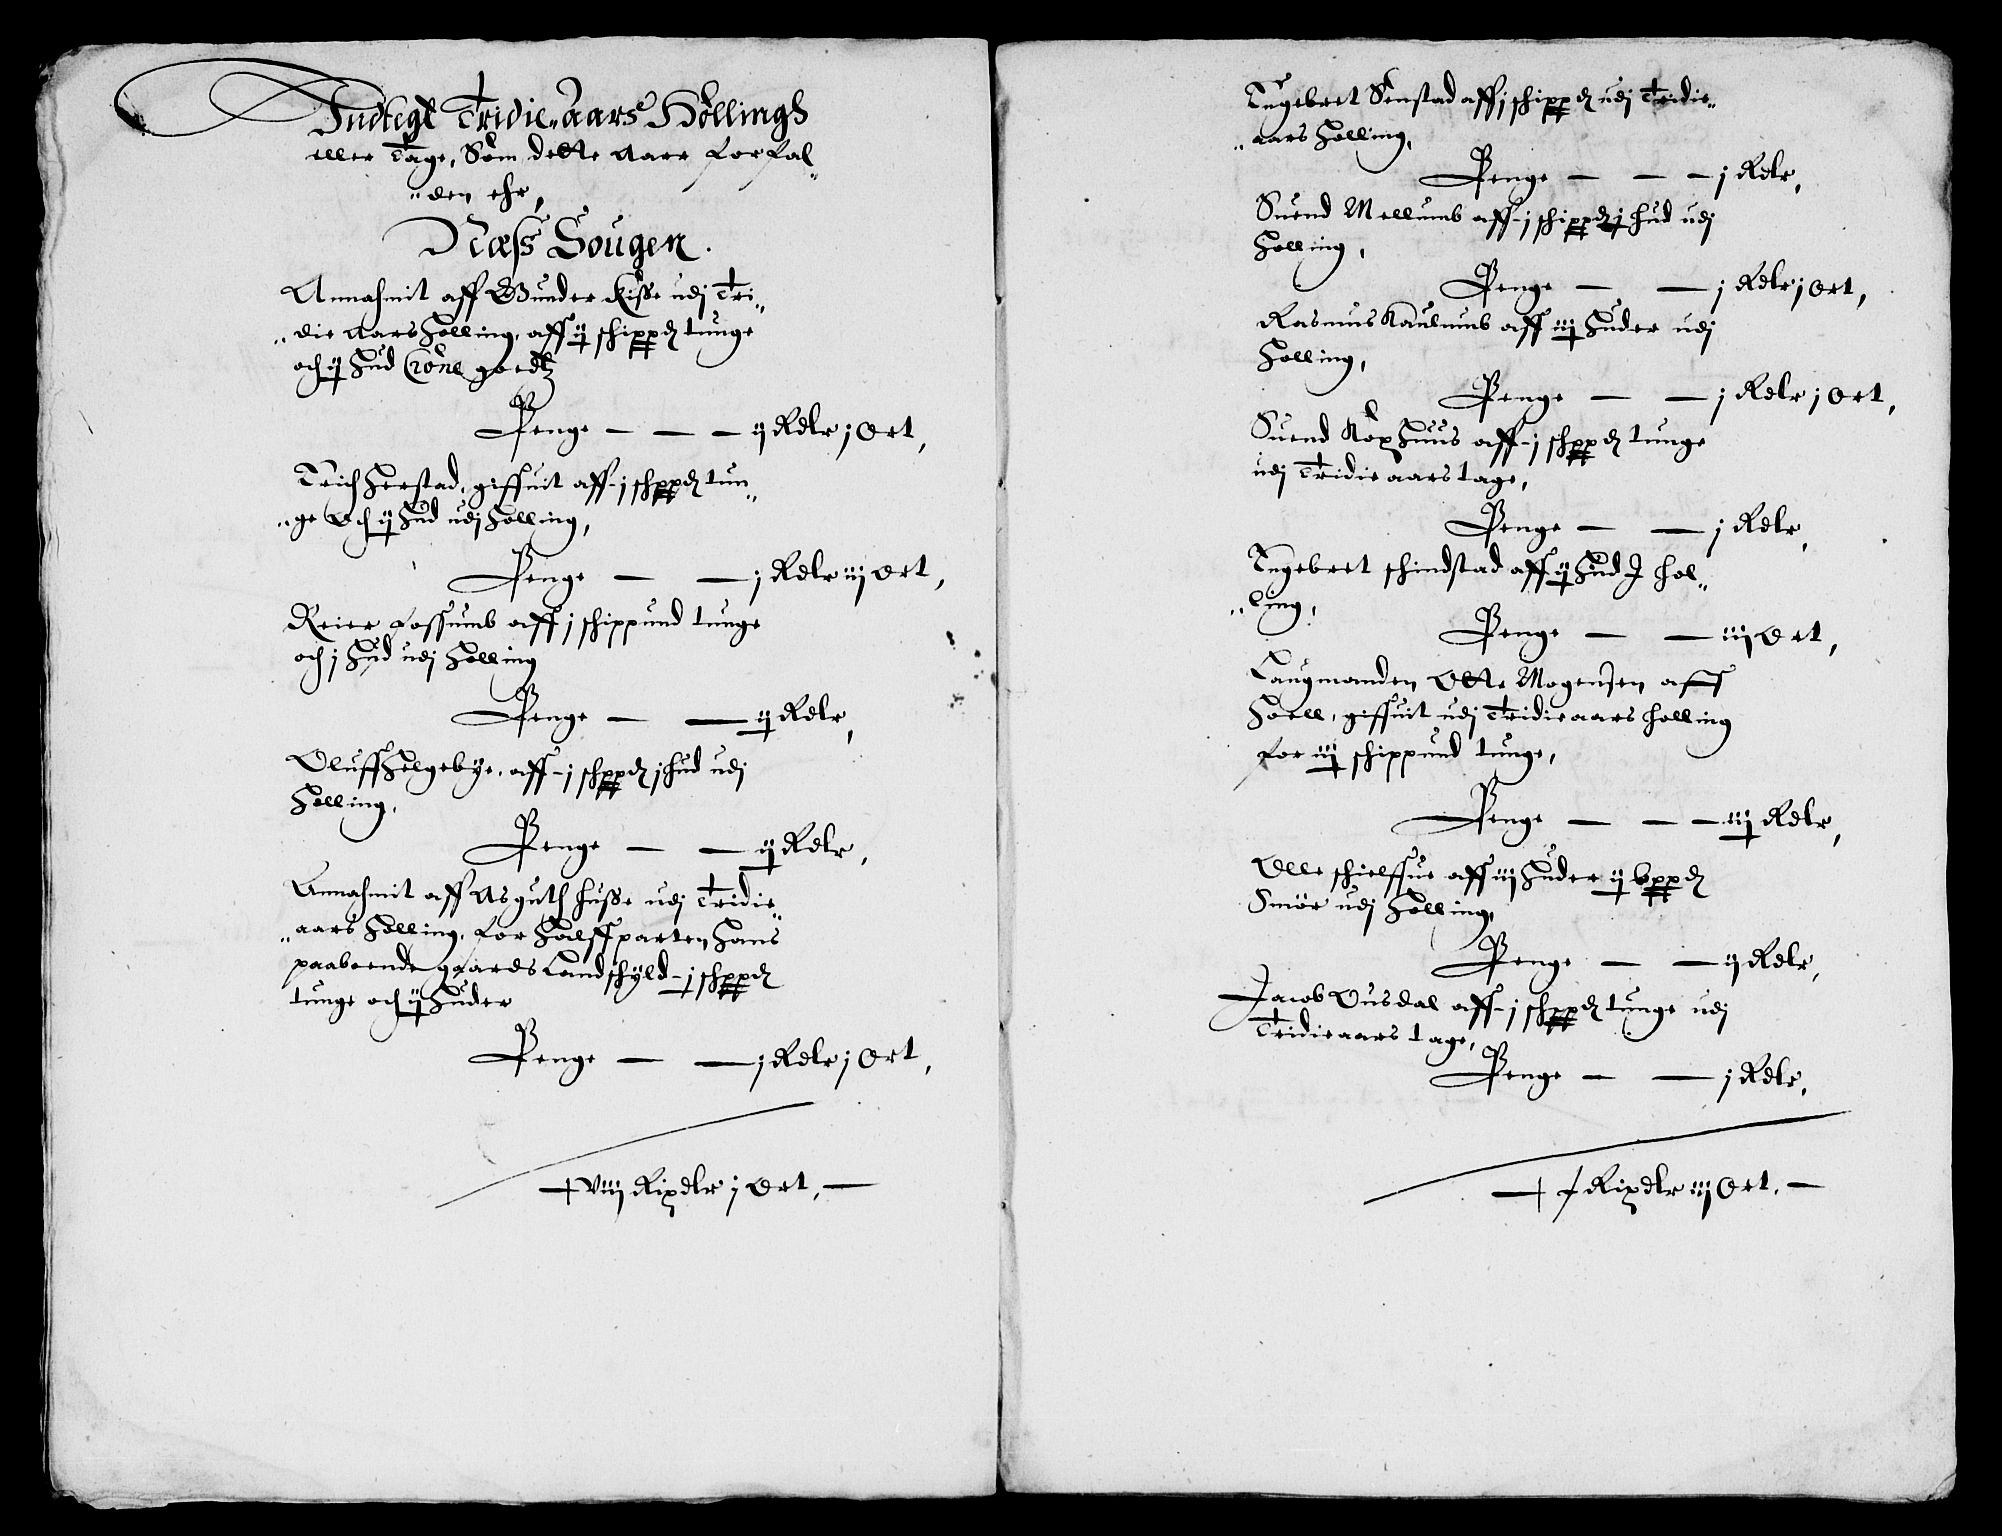 Indtegt Tridie aars Höllingh
eller Tage, Som dette Aar forfal„
„den ehr,
Næss Sougen.
Annahmit aff Gunder Kisse udj Tri„
„die Aars Holling, aff ij schippd tunge
och ij Hud Crone goedtz
Penge — — — ij Rdlr j Ort,
Erich Herstad, giffuit aff j schppd tun„
„ge Och ij Hud udj Holling,
Penge — — j Rdlr iij Ort,
Reier Fossumb aff j schippund tunge
och j Hud udj Holling
Penge — — ij Rdlr,
Oluff Helgebÿe, aff j schppd j hud udj
Holling,
Penge — — ij Rdlr,
Annahmit aff Asguth husse udj Tridie„
„aars Holling, for Halffparten Hans
paaboende gaards Landschÿld j schppd
tunge och ij Huder
Penge — — j Rdlr j Ort,
viij Rixdlr j Ort,
Engebret Senstad aff j schippd udj Tridie„
„aars Holling,
Penge — — — j Rdlr,
Suend Mellumb aff j schippd j hud udj
Holling,
Penge — — j Rdlr j Ort,
Rasmus Kaulumb aff iij Huder udj
Holling,
Penge — — j Rdlr j Ort,
Suend Kophuus aff j schppd tunge
udj Tridie aars tage,
Penge — — j Rdlr,
Engebret schindstad aff ij Hud I hol„
„ling,
Penge — — iij Ort,
Laugmanden Otte Mogensen aff
Hoell, giffuit udj Tridie aars holling
for iij schippund tunge,
Penge — — — iij Rdlr,
Olle schielffue aff iij Huder ij bppd
Smör udj Holling,
Penge — — ij Rdlr,
Jacob Ousdal aff j schppd tunge udj
Tridie aars tage,
Penge — — j Rdlr,
Rixdlr iij Ort,